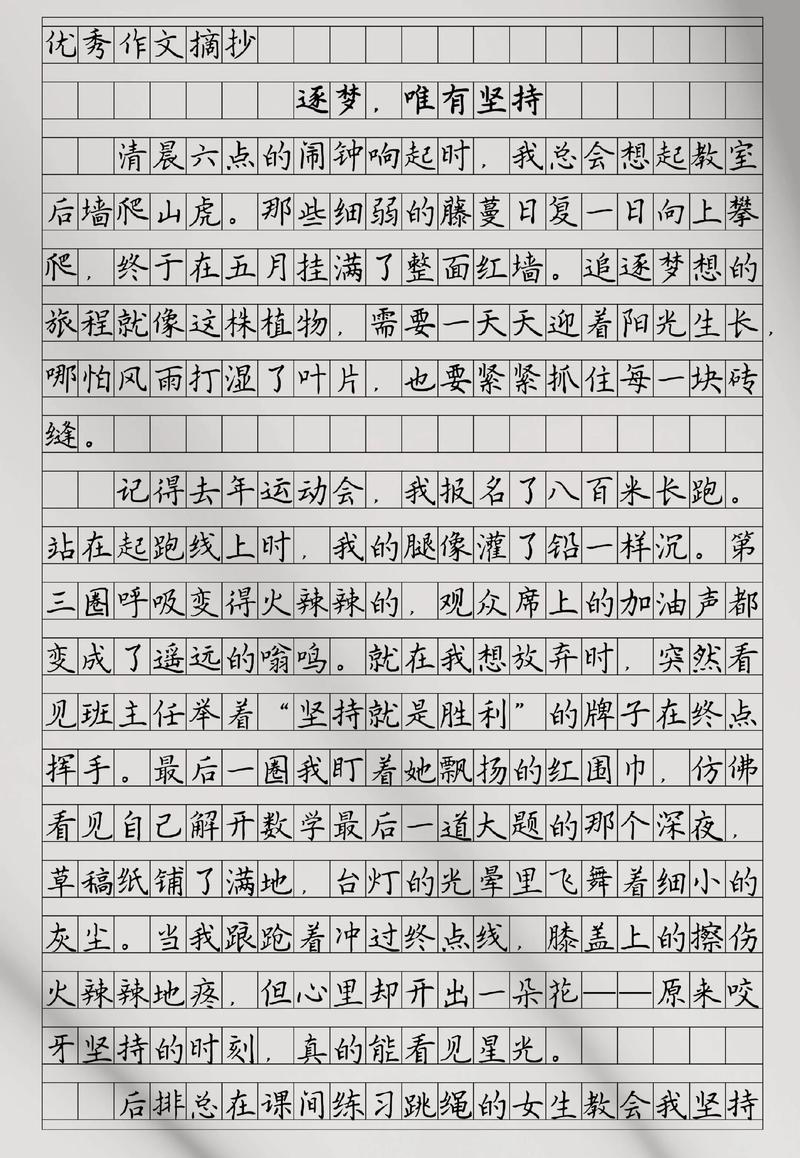 优秀作文摘抄
逐梦，唯有坚持
清晨六点的闹钟响起时，我总会想起教室
后墙爬山虎。那些细弱的藤蔓日复一日向上攀
爬，终于在五月挂满了整面红墙。追逐梦想的
旅程就像这株植物，需要一天天迎着阳光生长，
哪怕风雨打湿了叶片，也要紧紧抓住每一块砖
缝。
记得去年运动会，我报名了八百米长跑。
站在起跑线上时，我的腿像灌了铅一样沉。第
三圈呼吸变得火辣辣的，观众席上的加油声都
变成了遥远的嗡鸣。就在我想放弃时，突然看
见班主任举着“坚持就是胜利”的牌子在终点
挥手。最后一圈我盯着她飘扬的红围巾，仿佛
看见自己解开数学最后一道大题的那个深夜，
草稿纸铺了满地，台灯的光晕里飞舞着细小的
灰尘。当我踉跄着冲过终点线，膝盖上的擦伤
火辣辣地疼，但心里却开出一朵花——原来咬
牙坚持的时刻，真的能看见星光。
后排总在课间练习跳绳的女生教会我坚持